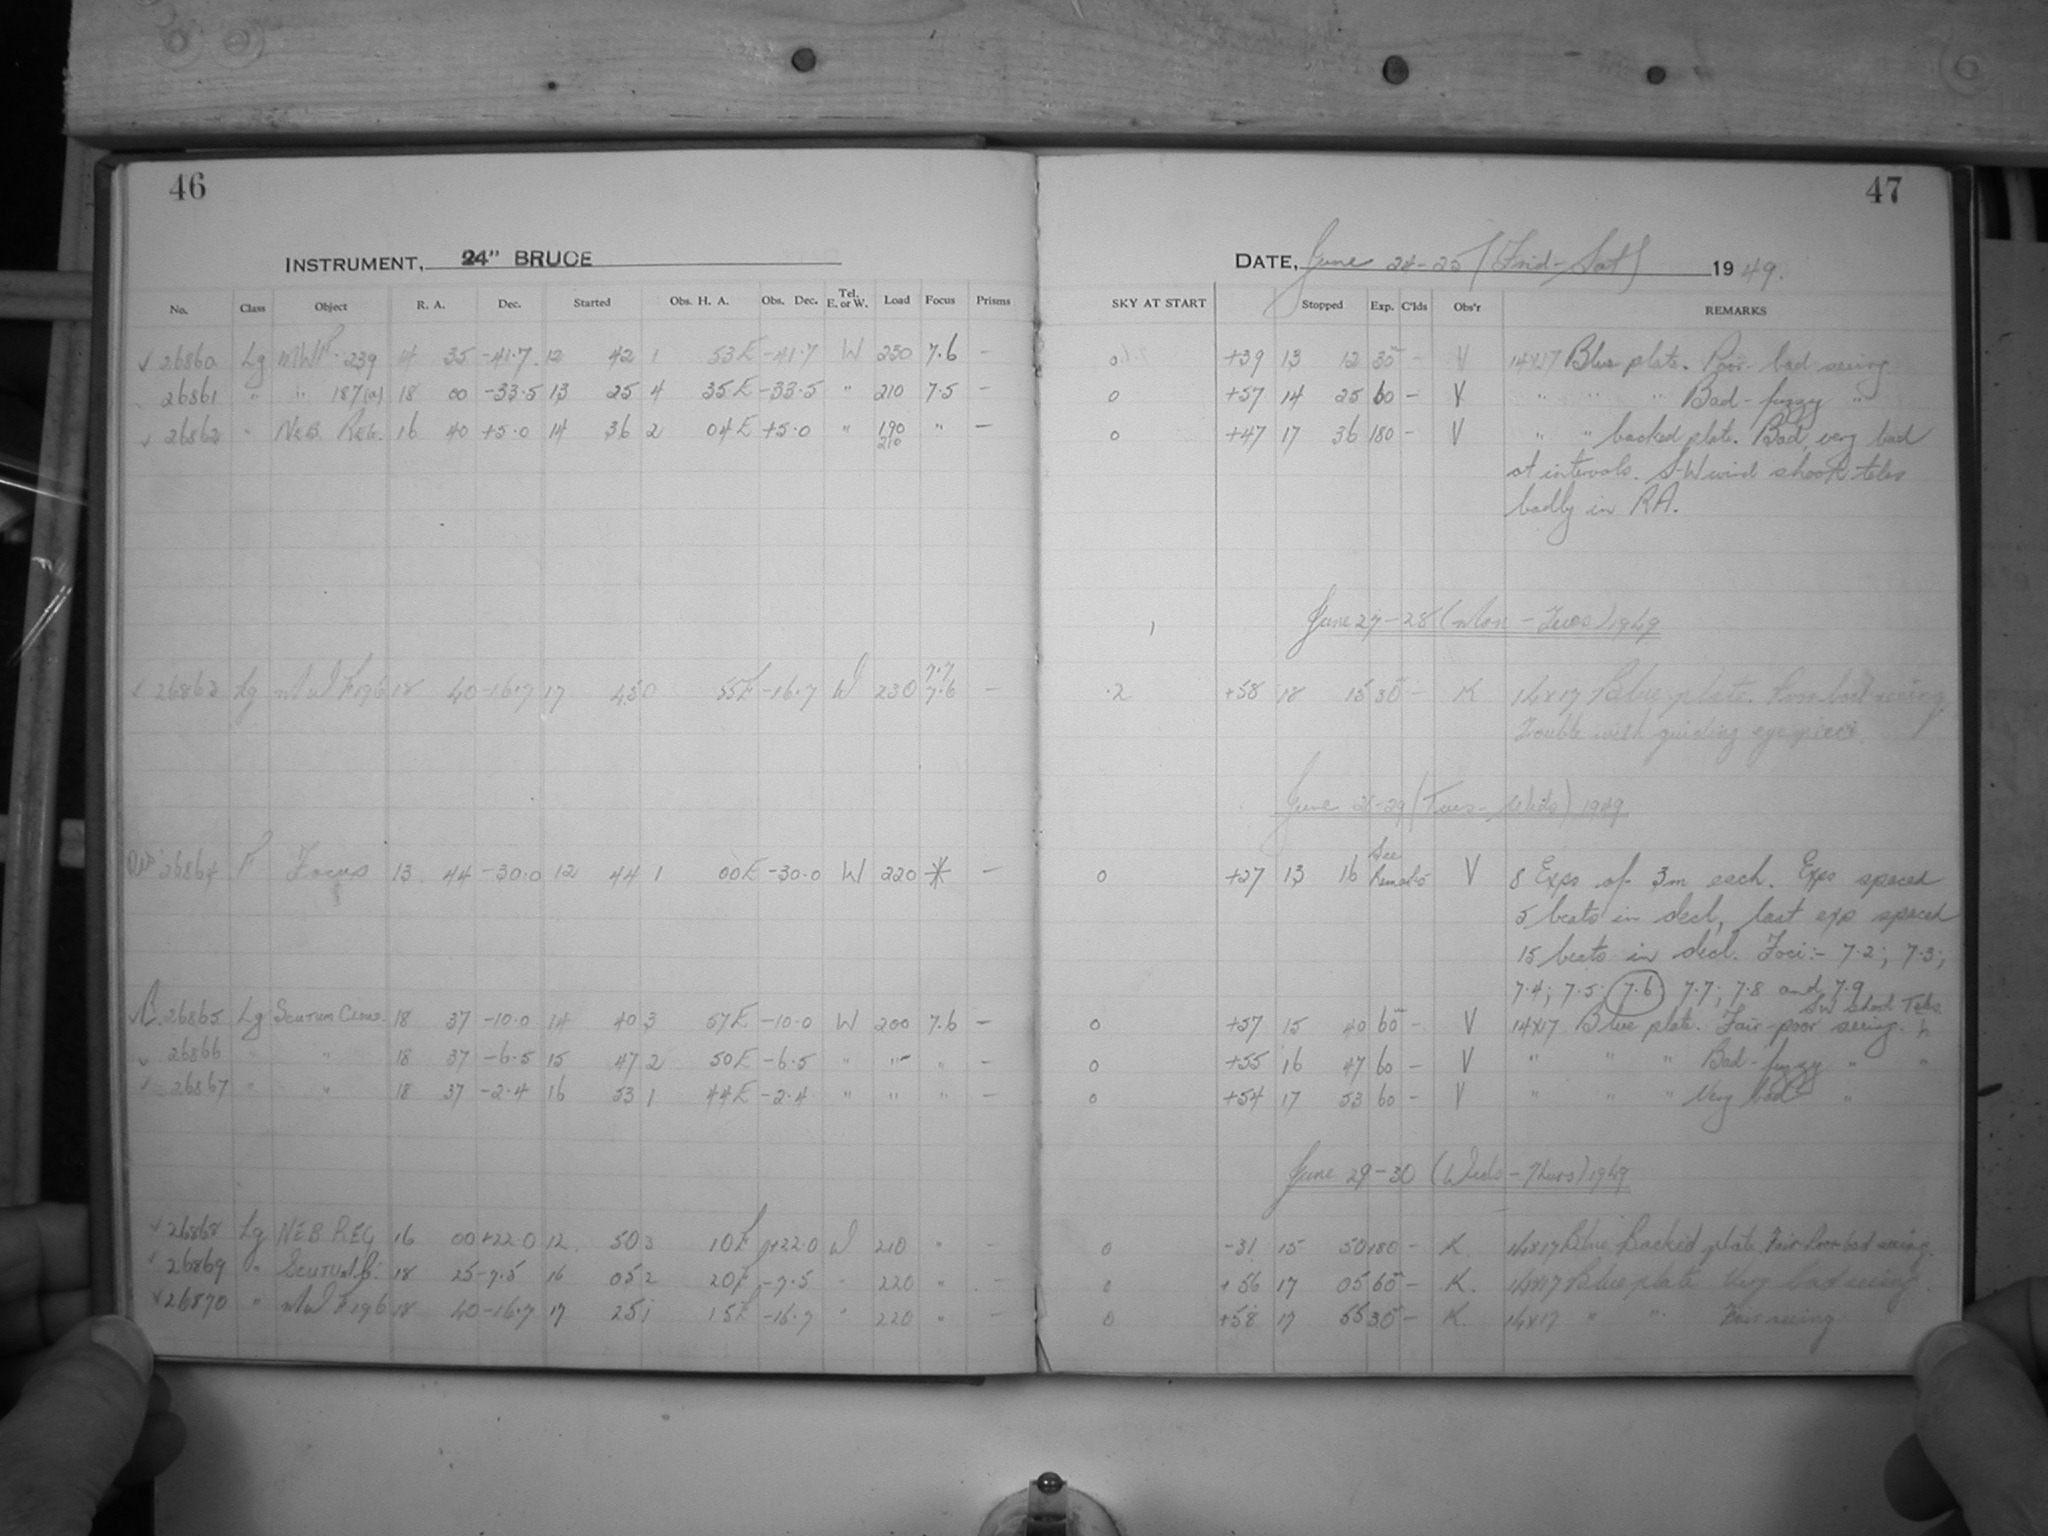 46
47
INSTRUMENT, 24" BRUCE
DATE, June 24-25 (Frid-Sat) 1949.
No. Class Object R. A. Dec. Started Obs. H. A. Obs. Dec. Tel. E. or W. Load Focus Prisms
SKY AT START Stopped Exp. C'lds Obs'r REMARKS
✓ 26860 Lg MWF 239 14 35 -41.7 12 42 1 53E -41.7 W 230 7.6 — 0 +39 13 12 30 — V 14x17 Blue plate. Poor-bad seeing
26861 " " 187(a) 18 00 -33.5 13 25 4 35E -33.5 " 210 7.5 — 0 +57 14 25 60 — V " " " Bad-fuzzy "
✓ 26862 " NEB. REG. 16 40 +5.0 14 36 2 04E +5.0 " 190 210 " — 0 +47 17 36 180 — V " " backed plate. Bad, very bad
at intervals. S-W wind shook teles
badly in RA.
June 27-28 (Mon - Tues) 1949
✓ 26863 Lg MWF 196 18 40 -16.7 17 45 0 55E -16.7 W 230 7.7 7.6 — .2 +58 18 15 30 — K 14x17 Blue plate. Poor bad seeing
Trouble with guiding eyepiece
June 28-29 (Tues - Weds) 1949
26864 F Focus 13 44 -30.0 12 44 1 00E -30.0 W 220 * — 0 +27 13 16 See Remarks V 8 Exps of 3m each. Exps spaced
5 beats in decl, last exp spaced
15 beats in decl. Foci:- 7.2; 7.3;
7.4; 7.5; 7.6 7.7; 7.8 and 7.9
26865 Lg SCUTUM CLOUD 18 37 -10.0 14 40 3 57E -10.0 W 200 7.6 — 0 +57 15 40 60 — V 14x17 Blue plate. Fair-poor seeing. SW shook Teles.
✓ 26866 " " 18 37 -6.5 15 47 2 50E -6.5 " " " — 0 +55 16 47 60 — V " " " Bad-fuzzy " "
✓ 26867 " " 18 37 -2.4 16 53 1 44E -2.4 " " " — 0 +54 17 53 60 — V " " " Very bad "
June 29-30 (Weds - Thurs) 1949
✓ 26868 Lg NEB REG 16 00 +22.0 12 50 3 10E +22.0 W 210 " — 0 -31 15 50 180 — K. 14x17 Blue Backed plate Fair Poor bad seeing.
26869 " Scutum 18 25 -7.5 16 05 2 20E -7.5 " 220 " — 0 +56 17 05 60 — K. 14x17 Blue plate Very bad seeing
✓ 26870 " MWF 196 18 40 -16.7 17 25 1 15E -16.7 " 220 " — 0 +58 17 55 30 — K. 14x17 " " Fair seeing